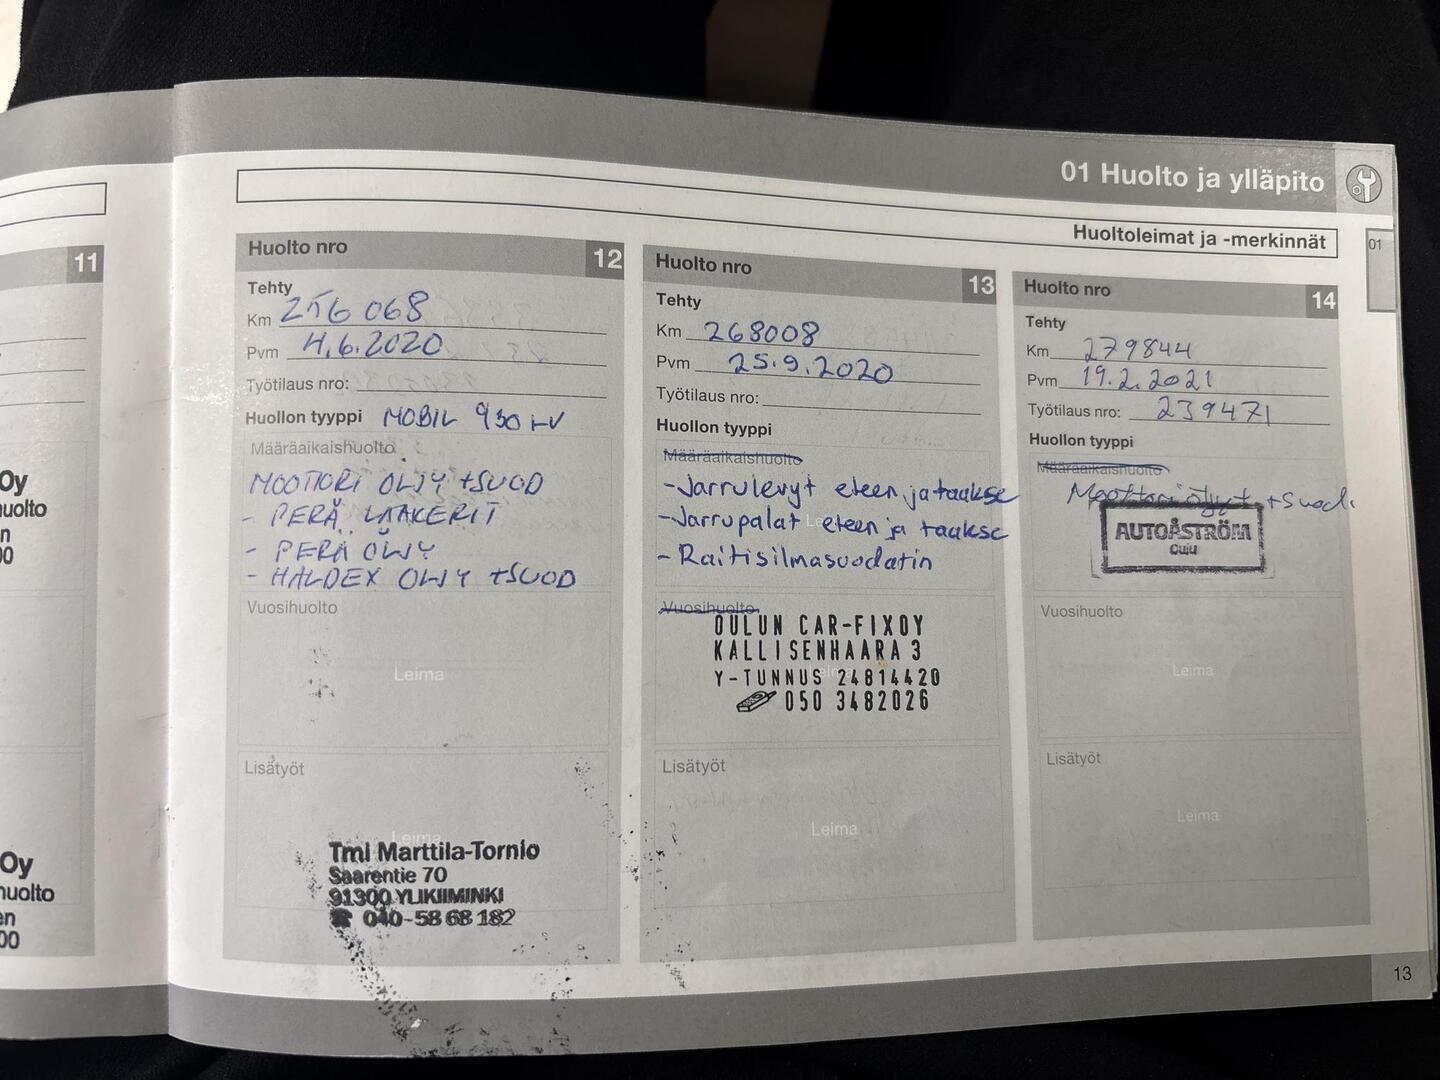 01 Huolto ja ylläpito
Huoltoleimat ja -merkinnät
01
11
Oy
huolto
n
00
Oy
huolto
en
00
Huolto nro 12
Tehty
Km 256 068
Pvm 4.6.2020
Työtilaus nro:
Huollon tyyppi MOBIL
Määräaikaishuolto
MOOTTORI ÖLJY +SUOD
- PERÄ LAAKERIT
- PERÄ ÖLJY
- HALDEX ÖLJY +SUOD
Vuosihuolto
Leima
Lisätyöt
Leima
Tmi Marttila-Tornio
Saarentie 70
91300 YLIKIIMINKI
☎ 040-58 68 182
Huolto nro 13
Tehty
Km 268008
Pvm 25.9.2020
Työtilaus nro:
Huollon tyyppi
Määräaikaishuolto
-Jarrulevyt eteen ja taakse
-Jarrupalat eteen ja taakse
-Raitisilmasuodatin
Vuosihuolto
OULUN CAR-FIXOY
KALLISENHAARA 3
Y-TUNNUS 24814420
050 3482026
Lisätyöt
Leima
Huolto nro 14
Tehty
Km 279844
Pvm 19.2.2021
Työtilaus nro: 239471
Huollon tyyppi
Määräaikaishuolto
Moottoriöljyt +suod.
AUTOÅSTRÖM
Oulu
Vuosihuolto
Leima
Lisätyöt
Leima
13